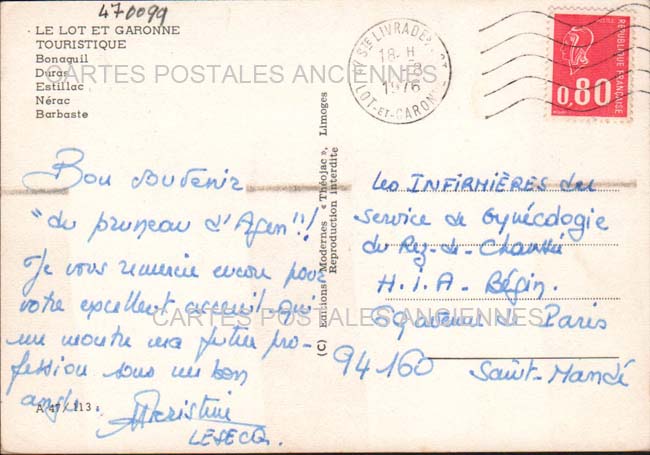 470099
LE LOT ET GARONNE
TOURISTIQUE
Bonaguil
Duras
Estillac
Nérac
Barbaste
CARTES POSTALES ANCIENNES
STE LIVRADE
18-H
1976
LOT-ET-GARONNE
0,80
REPUBLIQUE FRANÇAISE
Bon souvenir
"du pruneau d'Agen"!!
Je vous remercie encore pour
votre excellent acceuil qui
me montre ma future pro-
fession sous un bon
angle.
Christine
LESECQ.
A 47/113
(C) Editions Modernes « Théojac », Limoges
Reproduction interdite
Les INFIRMIÈRES du
Service de Gynécologie
du Rez-de-Chaussée
H.I.A. Bégin.
69 avenue de Paris
94160 Saint-Mandé
CARTES POSTALES ANCIENNES